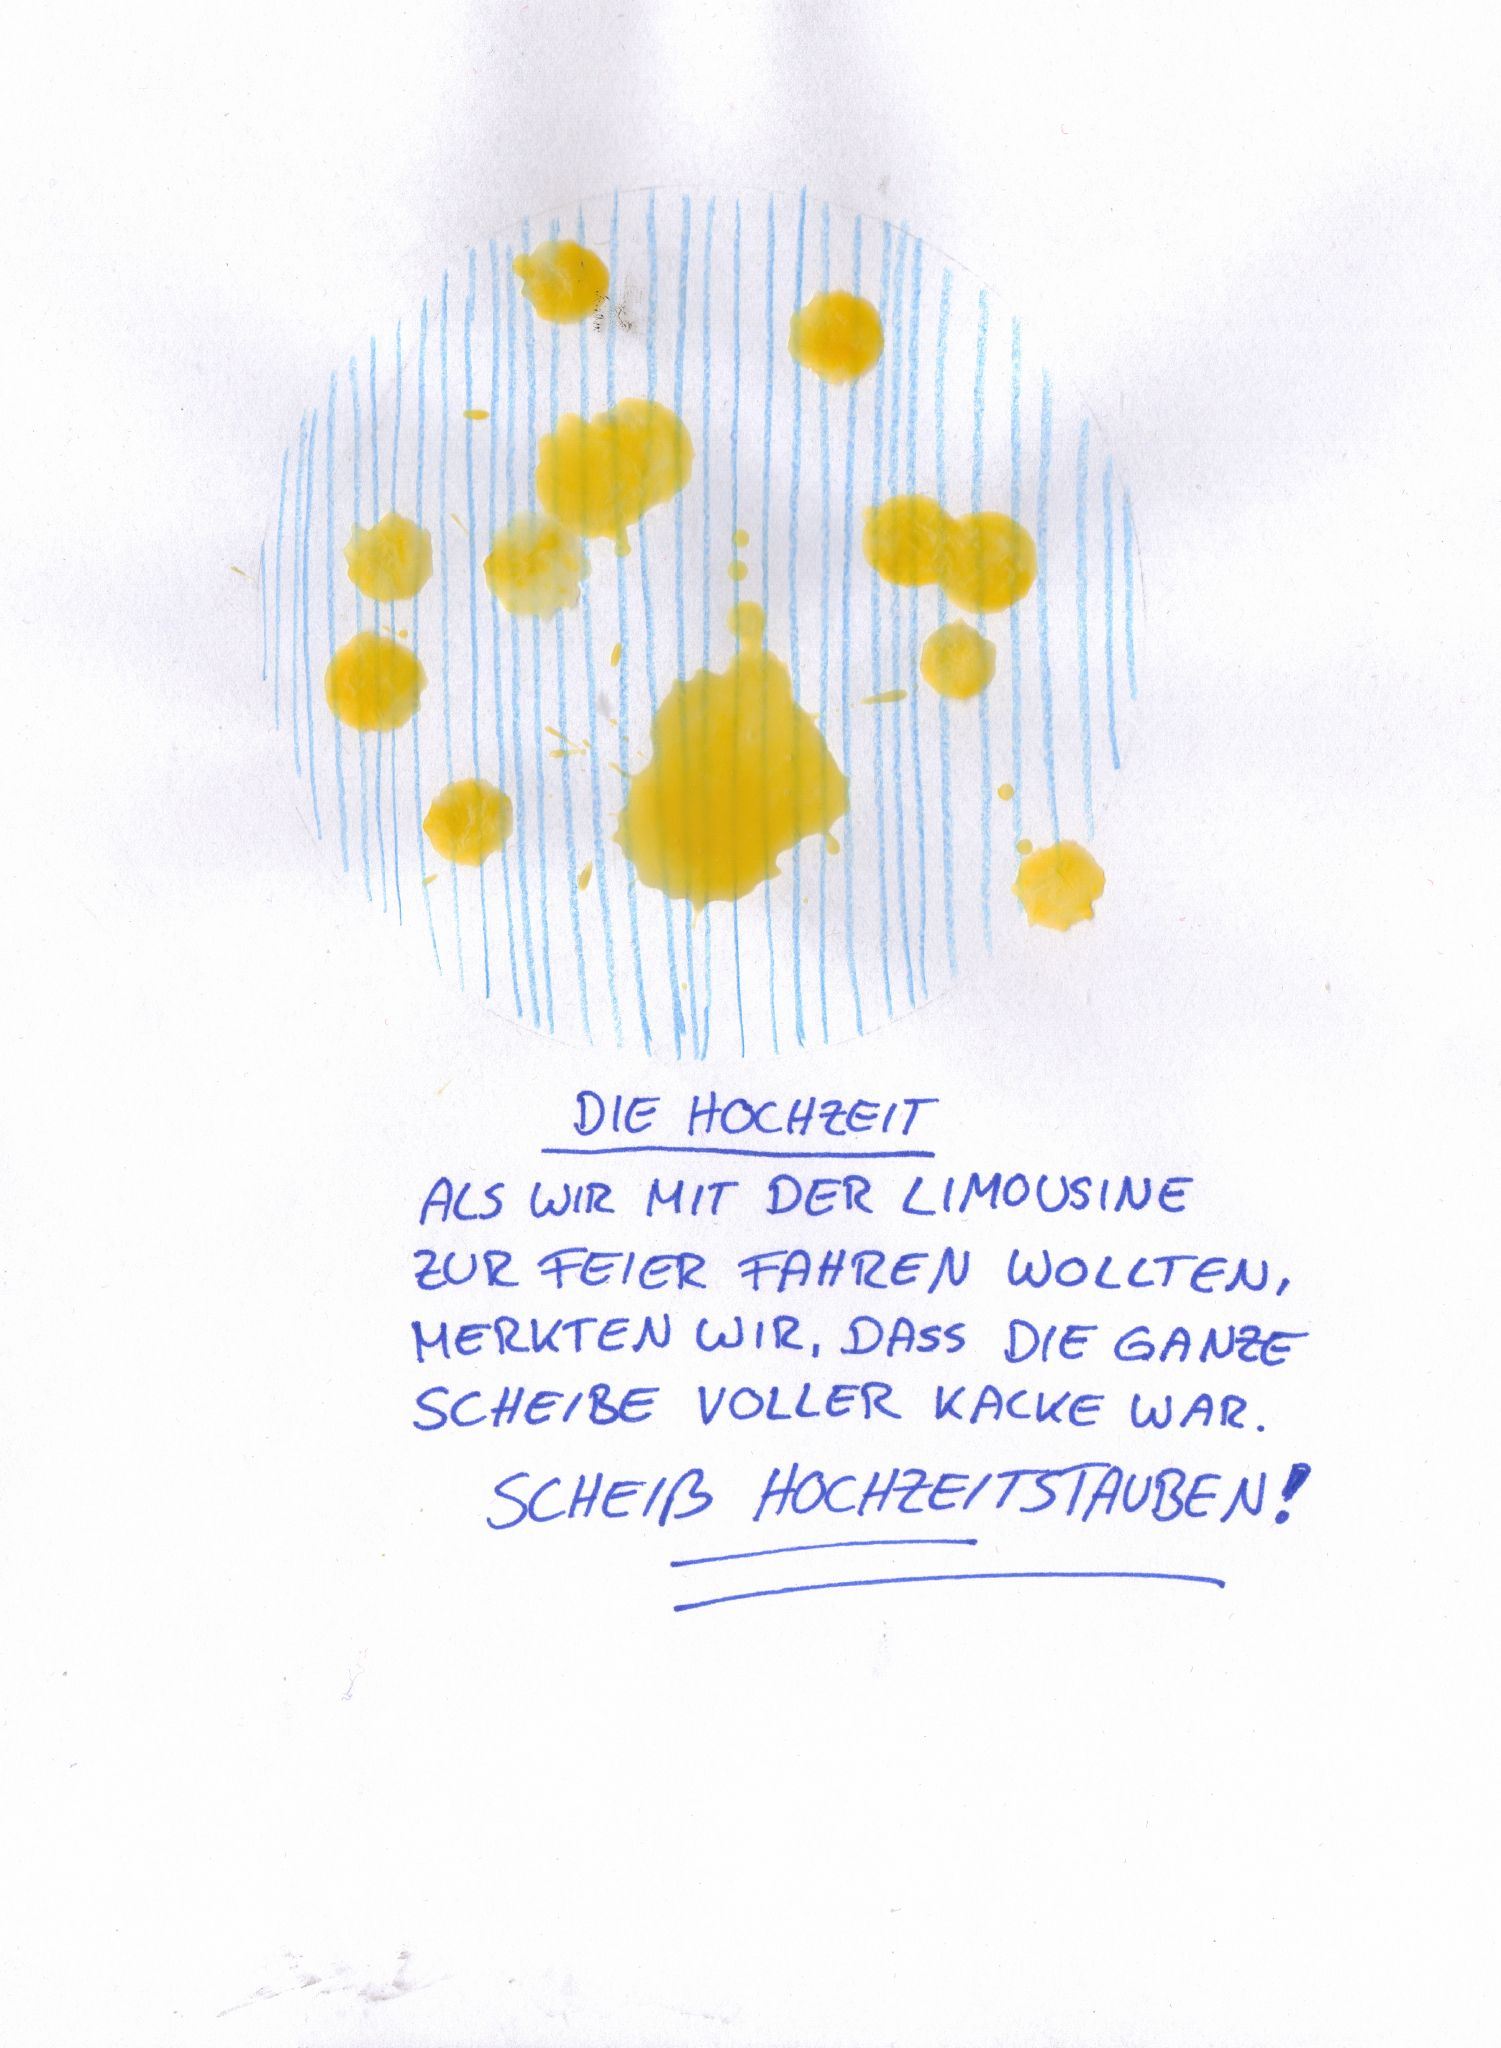 DIE HOCHZEIT
ALS WIR MIT DER LIMOUSINE
ZUR FEIER FAHREN WOLLTEN,
MERKTEN WIR, DASS DIE GANZE
SCHEIBE VOLLER KACKE WAR.
SCHEIß HOCHZEITSTAUBEN!